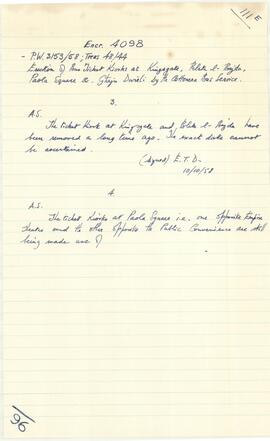 111E
Encr. 4098
- P.W. 3153/58; Tras 48/44
Erection of Bus Ticket Kiosks at Kingsgate, Blata l-Bajda,
Paola Square & Għajn Dwieli by the Cottonera Bus Service.
3.
A.S.
The ticket Kiosk at Kingsgate and Blata l-Bajda have
been removed a long time ago. The exact date cannot
be ascertained.
(Signed) E.T.D.
10/10/58
4.
A.S.
The ticket Kiosks at Paola Square i.e. one opposite Empire
Theatre and the other opposite to Public Convenience are still
being made use of
96